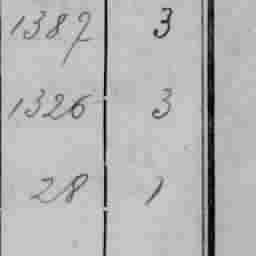 1387 3
1326 3
28 1